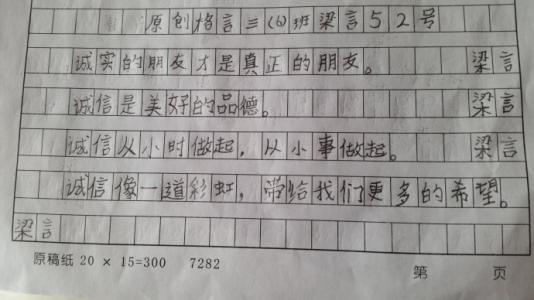 原创格言三(6)班梁言52号
诚实的朋友才是真正的朋友。 梁言
诚信是美好的品德。 梁言
诚信从小时做起，从小事做起。 梁言
诚信像一道彩虹，带给我们更多的希望。
梁言
原稿纸 20 × 15=300 7282 第 页